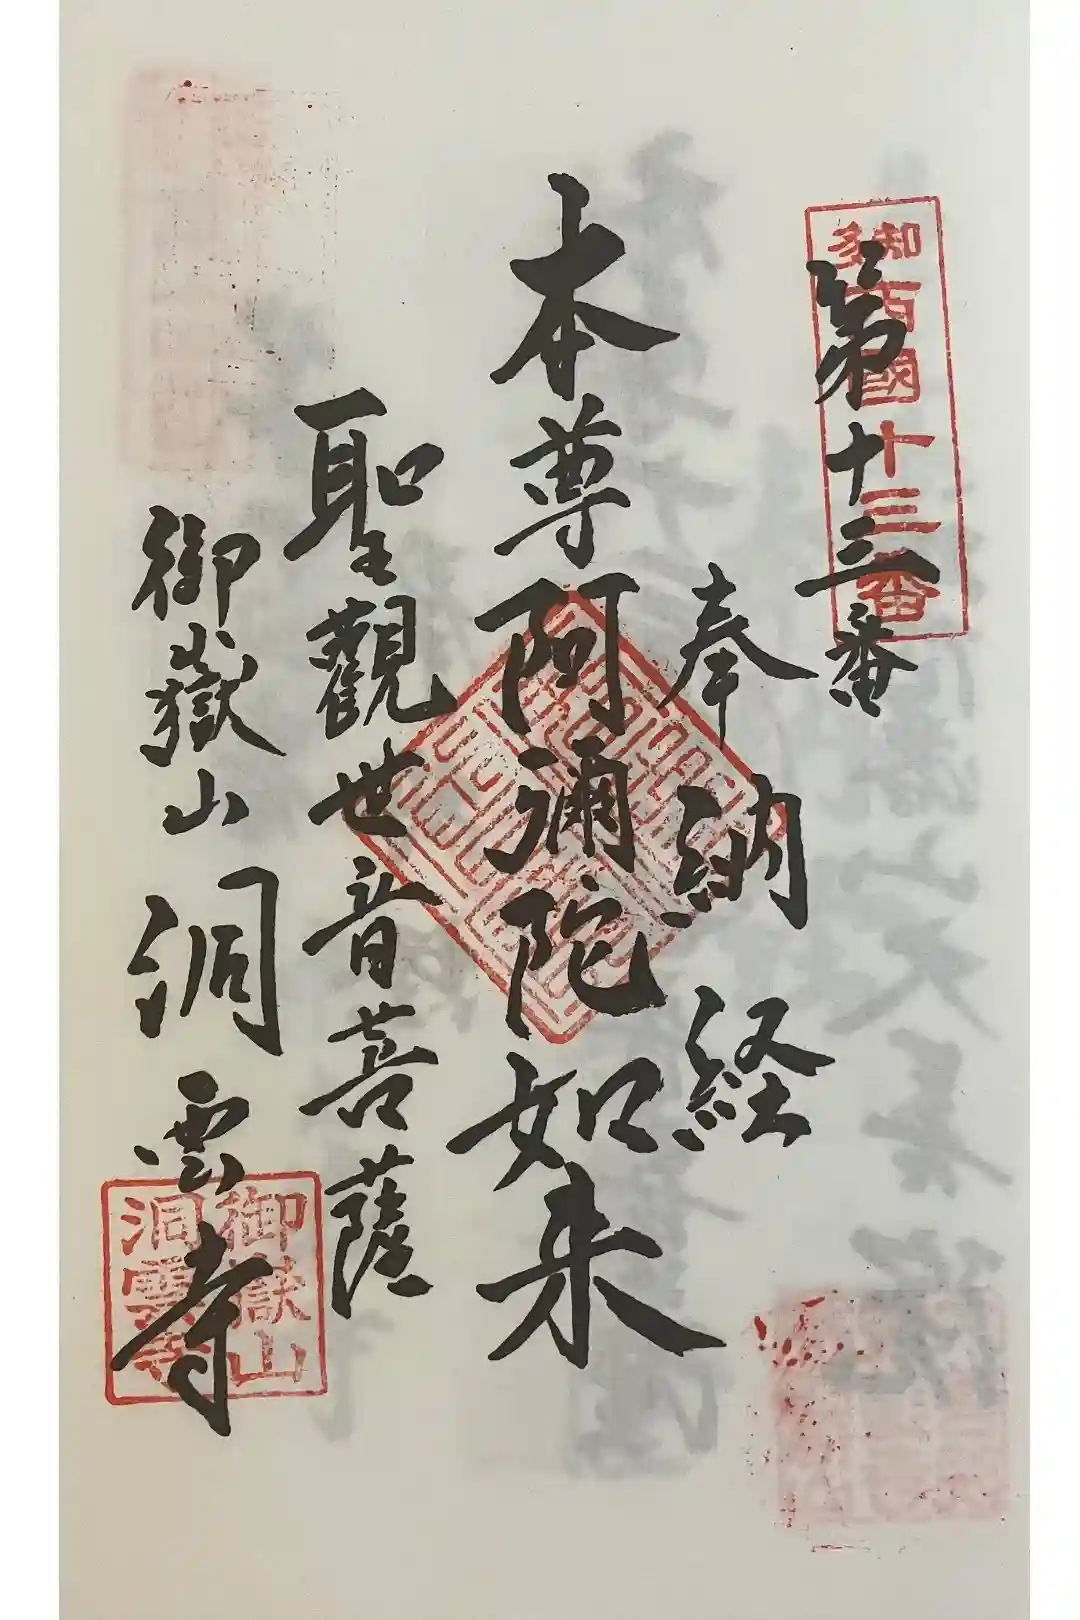 第十三番
奉納経
本尊阿彌陀如来
聖觀世音菩薩
御嶽山洞雲寺
御嶽山
洞雲寺